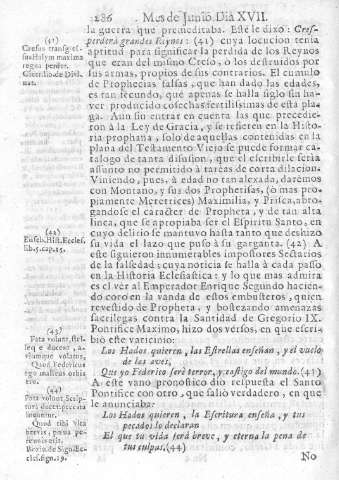 286 Mes de Junio. Dia XVII.
la guerra que premeditaba. Este le dixo: Cres-
perderá grandes Reynos: (41) cuya locucion tenia
aptitud para significar la perdida de los Reynos
que eran del mismo Creso, ò los destruidos por
sus armas, propios de sus contrarios. El cumulo
de Prophecias falsas, que han dado las edades,
es tan fecundo, que apenas se halla siglo sin ha-
ver producido cosechas fertilissimas de esta pla-
ga. Aun sin entrar en cuenta las que precedie-
ron à la Ley de Gracia, y se refieren en la Histo-
ria prophana, solo de aquellas contenidas en la
plana del Testamento Viejo se puede formar ca-
talogo de tanta difusion, que el escribirle seria
assunto no permitido à tareas de corta dilacion.
Viniendo, pues, à edad no tan alexada, darèmos
con Montano, y sus dos Prophetisas, (ò mas pro-
piamente Meretrices) Maximilia, y Prisca, abro-
gandose el caracter de Propheta, y de tan alta
linea, que se apropiaba ser el Espiritu Santo, en
cuyo delirio se mantuvo hasta tanto que deshizo
su vida el lazo que puso à su garganta. (42) A
este siguieron innumerables impostores Sectarios
de la falsedad; cuya noticia se halla à cada passo
en la Historia Eclesiastica: y lo que mas admira
es el vèr al Emperador Enrique Segundo hacien-
do coro en la vanda de estos embusteros, quien
revestido de Propheta, y bostezando amenazas
sacrilegas contra la Santidad de Gregorio IX.
Pontifice Maximo, hizo dos versos, en que escri-
biò este vaticinio:
Los Hados quieren, las Estrellas enseñan, y el vuelo
de las aves,
Que yo Federico serè terror, y castigo del mundo. (43)
A este vano pronostico diò respuesta el Santo
Pontifice con otro, que saliò verdadero, en que
le anunciaba:
Los Hados quieren, la Escritura enseña, y tus
pecados lo declaran
El que su vida serà breve, y eterna la pena de
tus culpas. (44)
No
(41)
Cresus transgres-
sus Halym maxima
regna perdet.
Cicer. lib. de Divi-
nat.
(42)
Euseb. Hist. Eccles.
lib. 5. cap. 15.
(43)
Fata volunt, stel-
læque docent, a-
viumque volatus,
Quod Federicus
ego malleus orbis
ero.
(44)
Fata volunt, Scrip-
tura docet, peccata
loquuntur
Quod tibi vita
brevis, pœna pe-
rennis erit.